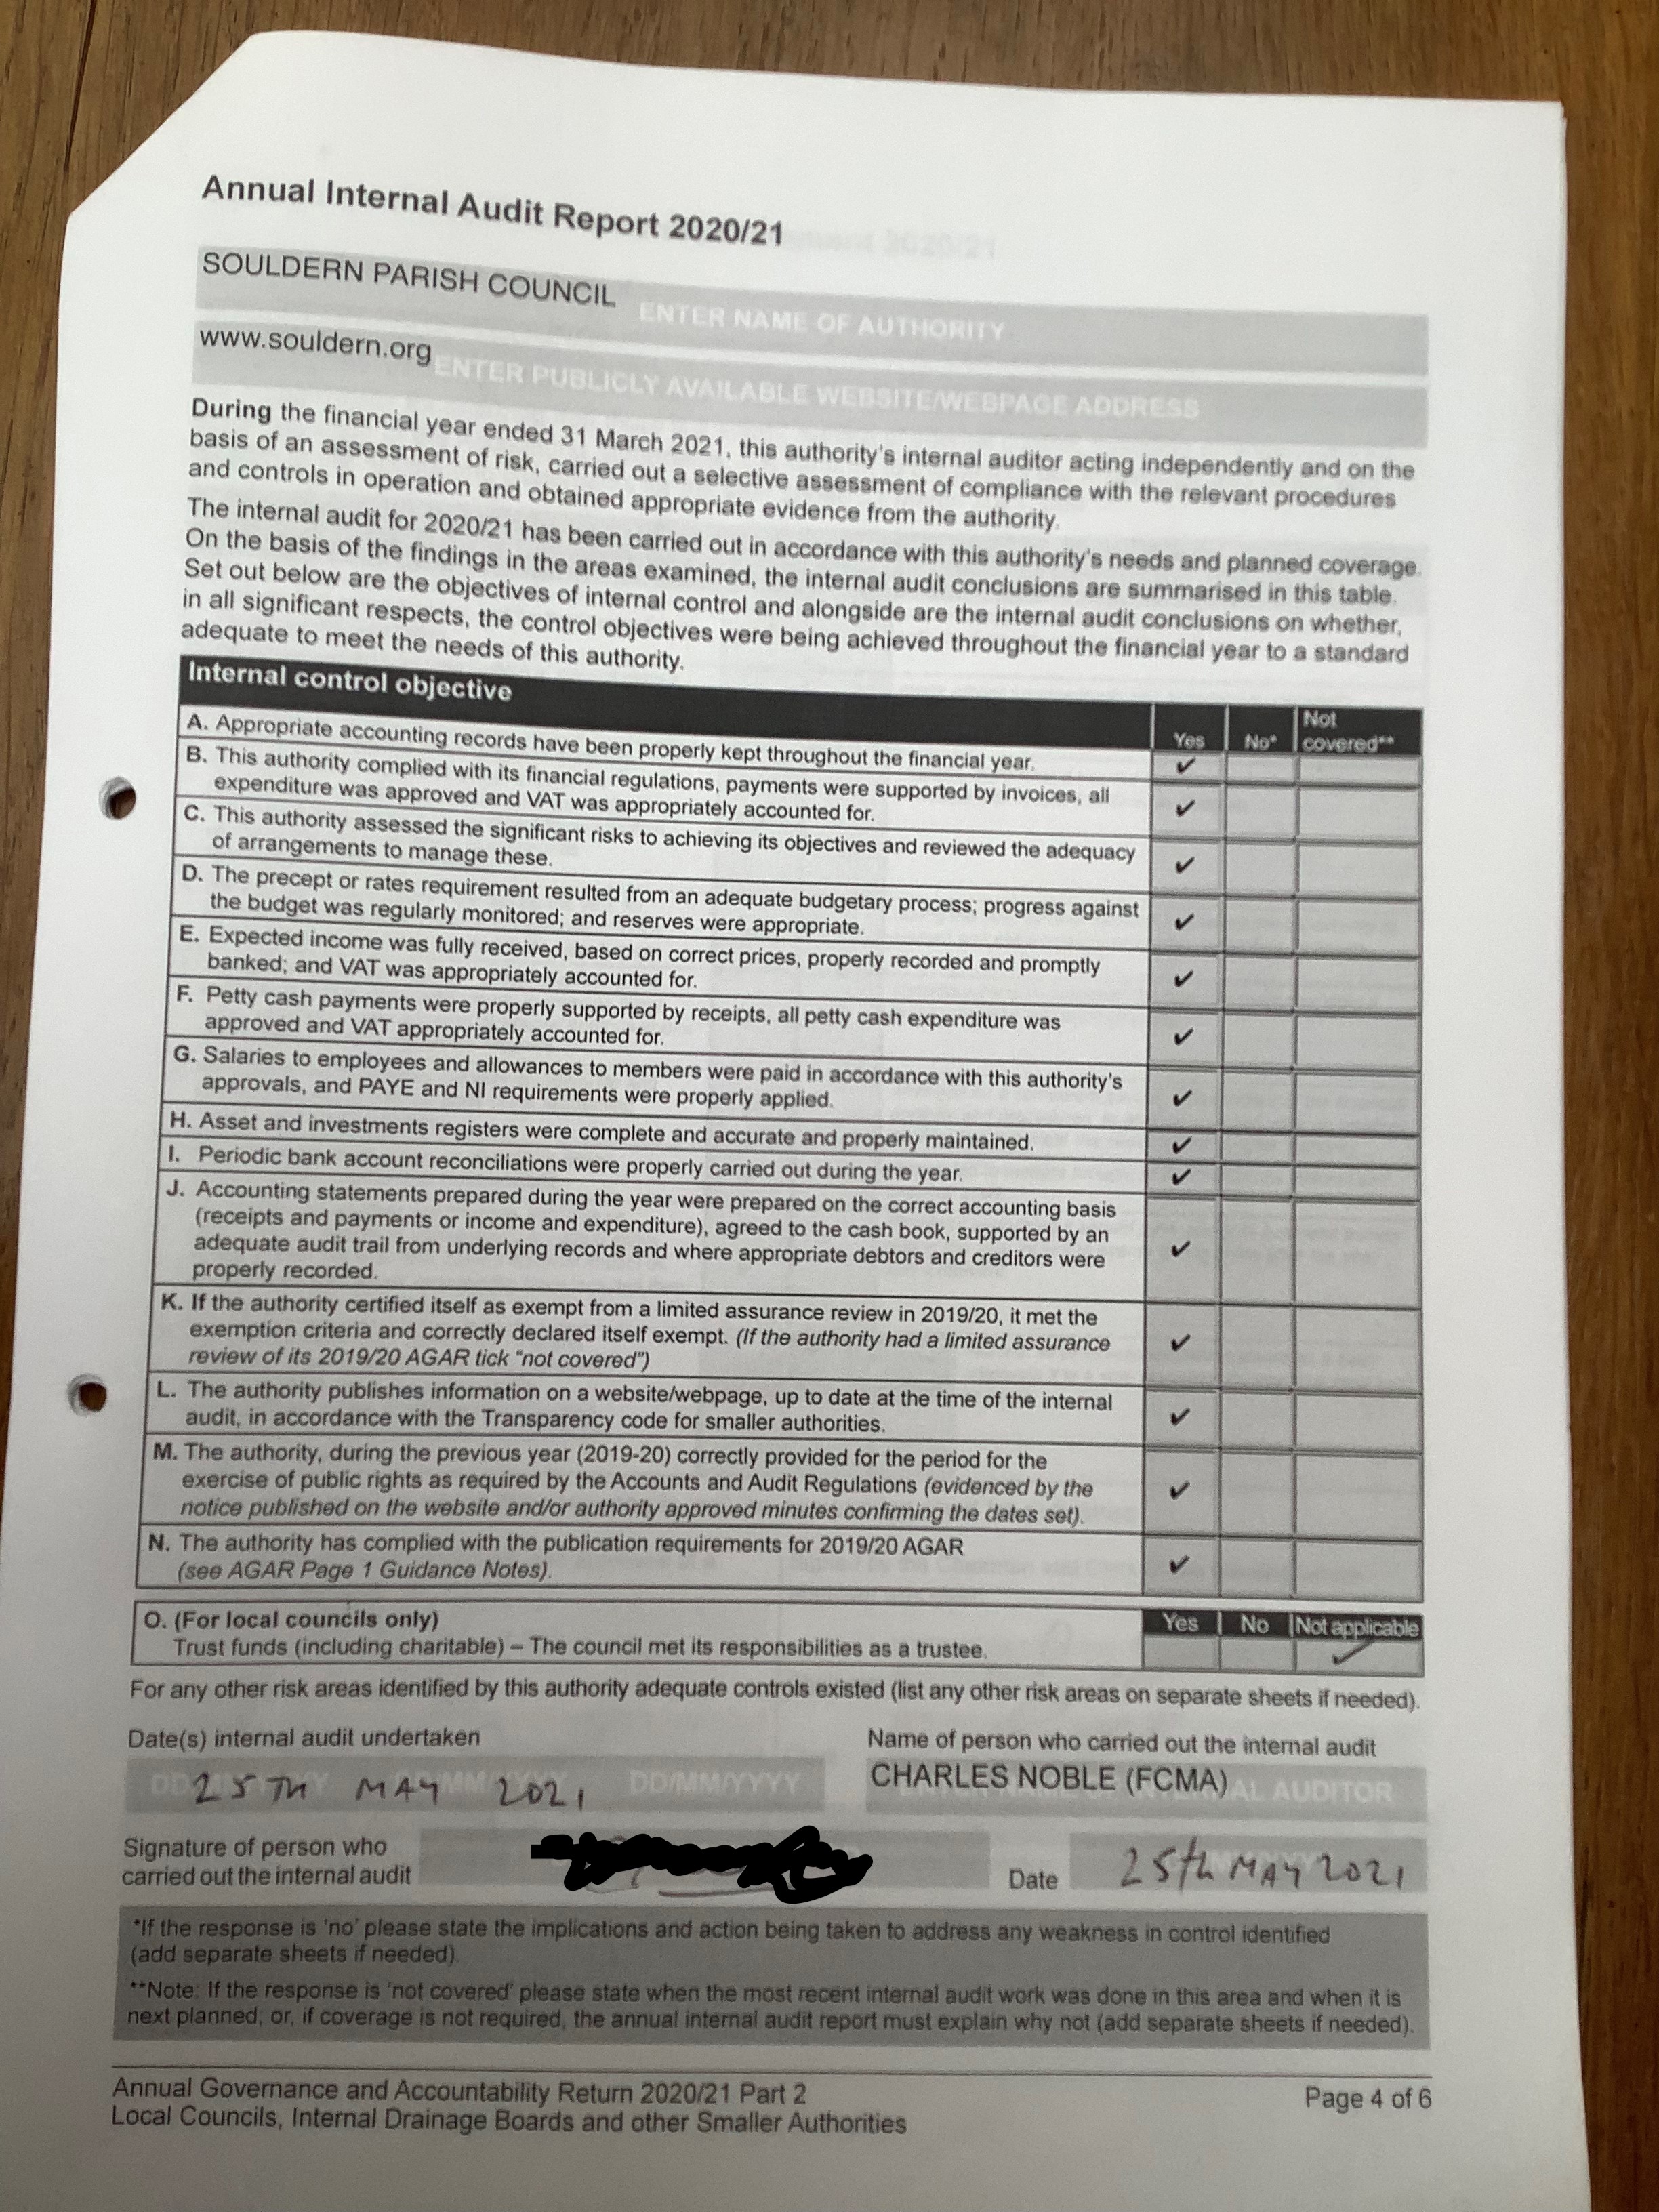 Annual Internal Audit Report 2020/21
SOULDERN PARISH COUNCIL ENTER NAME OF AUTHORITY
www.souldern.org ENTER PUBLICLY AVAILABLE WEBSITE/WEBPAGE ADDRESS
During the financial year ended 31 March 2021, this authority's internal auditor acting independently and on the
basis of an assessment of risk, carried out a selective assessment of compliance with the relevant procedures
and controls in operation and obtained appropriate evidence from the authority.
The internal audit for 2020/21 has been carried out in accordance with this authority's needs and planned coverage.
On the basis of the findings in the areas examined, the internal audit conclusions are summarised in this table.
Set out below are the objectives of internal control and alongside are the internal audit conclusions on whether,
in all significant respects, the control objectives were being achieved throughout the financial year to a standard
adequate to meet the needs of this authority.
Internal control objective Yes No* Not covered**
A. Appropriate accounting records have been properly kept throughout the financial year. ✔
B. This authority complied with its financial regulations, payments were supported by invoices, all
expenditure was approved and VAT was appropriately accounted for. ✔
C. This authority assessed the significant risks to achieving its objectives and reviewed the adequacy
of arrangements to manage these. ✔
D. The precept or rates requirement resulted from an adequate budgetary process; progress against
the budget was regularly monitored; and reserves were appropriate. ✔
E. Expected income was fully received, based on correct prices, properly recorded and promptly
banked; and VAT was appropriately accounted for. ✔
F. Petty cash payments were properly supported by receipts, all petty cash expenditure was
approved and VAT appropriately accounted for. ✔
G. Salaries to employees and allowances to members were paid in accordance with this authority's
approvals, and PAYE and NI requirements were properly applied. ✔
H. Asset and investments registers were complete and accurate and properly maintained. ✔
I. Periodic bank account reconciliations were properly carried out during the year. ✔
J. Accounting statements prepared during the year were prepared on the correct accounting basis
(receipts and payments or income and expenditure), agreed to the cash book, supported by an
adequate audit trail from underlying records and where appropriate debtors and creditors were
properly recorded. ✔
K. If the authority certified itself as exempt from a limited assurance review in 2019/20, it met the
exemption criteria and correctly declared itself exempt. (If the authority had a limited assurance
review of its 2019/20 AGAR tick "not covered") ✔
L. The authority publishes information on a website/webpage, up to date at the time of the internal
audit, in accordance with the Transparency code for smaller authorities. ✔
M. The authority, during the previous year (2019-20) correctly provided for the period for the
exercise of public rights as required by the Accounts and Audit Regulations (evidenced by the
notice published on the website and/or authority approved minutes confirming the dates set). ✔
N. The authority has complied with the publication requirements for 2019/20 AGAR
(see AGAR Page 1 Guidance Notes). ✔
O. (For local councils only) Yes No Not applicable
Trust funds (including charitable) – The council met its responsibilities as a trustee. ✓
For any other risk areas identified by this authority adequate controls existed (list any other risk areas on separate sheets if needed).
Date(s) internal audit undertaken Name of person who carried out the internal audit
25TH MAY 2021 DD/MM/YYYY CHARLES NOBLE (FCMA) AL AUDITOR
Signature of person who
carried out the internal audit Date 25th MAY 2021
*If the response is 'no' please state the implications and action being taken to address any weakness in control identified
(add separate sheets if needed).
**Note: If the response is 'not covered' please state when the most recent internal audit work was done in this area and when it is
next planned; or, if coverage is not required, the annual internal audit report must explain why not (add separate sheets if needed).
Annual Governance and Accountability Return 2020/21 Part 2 Page 4 of 6
Local Councils, Internal Drainage Boards and other Smaller Authorities